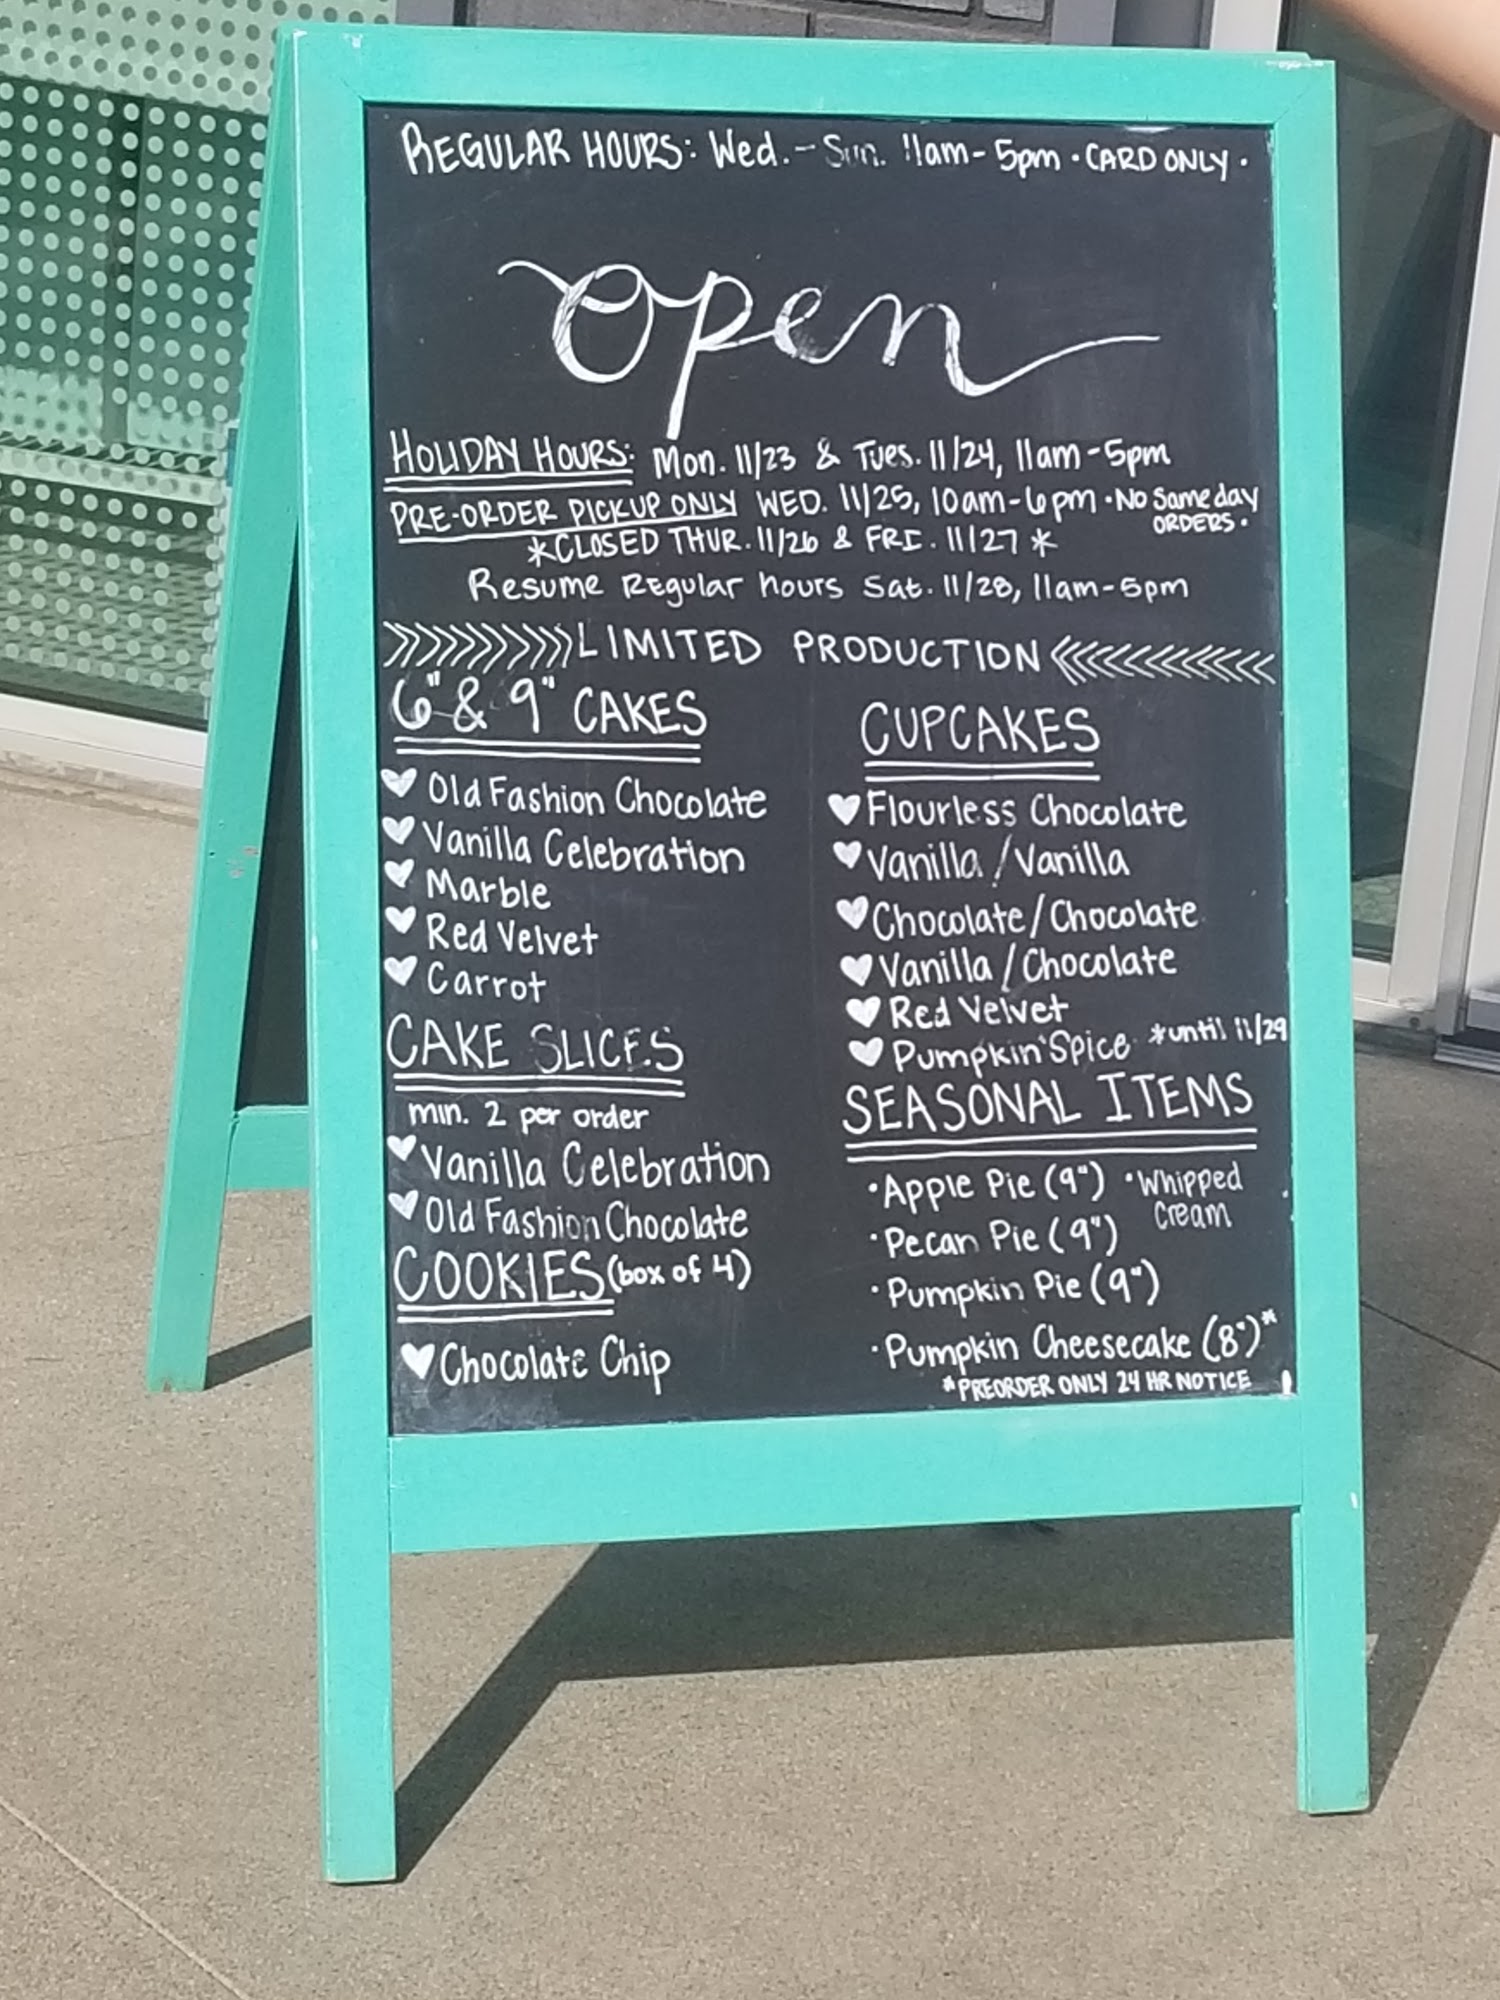 REGULAR HOURS: Wed. - Sun. 11am - 5pm · CARD ONLY ·
open
HOLIDAY HOURS: Mon. 11/23 & Tues. 11/24, 11am - 5pm
PRE-ORDER PICKUP ONLY WED. 11/25, 10am - 6pm · No Same day ORDERS ·
*CLOSED THUR. 11/26 & FRI. 11/27 *
Resume Regular hours Sat. 11/28, 11am - 5pm
LIMITED PRODUCTION
6" & 9" CAKES
Old Fashion Chocolate
Vanilla Celebration
Marble
Red Velvet
Carrot
CAKE SLICES
min. 2 per order
Vanilla Celebration
Old Fashion Chocolate
COOKIES (box of 4)
Chocolate Chip
CUPCAKES
Flourless Chocolate
Vanilla / Vanilla
Chocolate / Chocolate
Vanilla / Chocolate
Red Velvet
Pumpkin Spice *until 11/29
SEASONAL ITEMS
· Apple Pie (9") · Whipped
Cream
· Pecan Pie (9")
· Pumpkin Pie (9")
· Pumpkin Cheesecake (8")*
*PREORDER ONLY 24 HR NOTICE